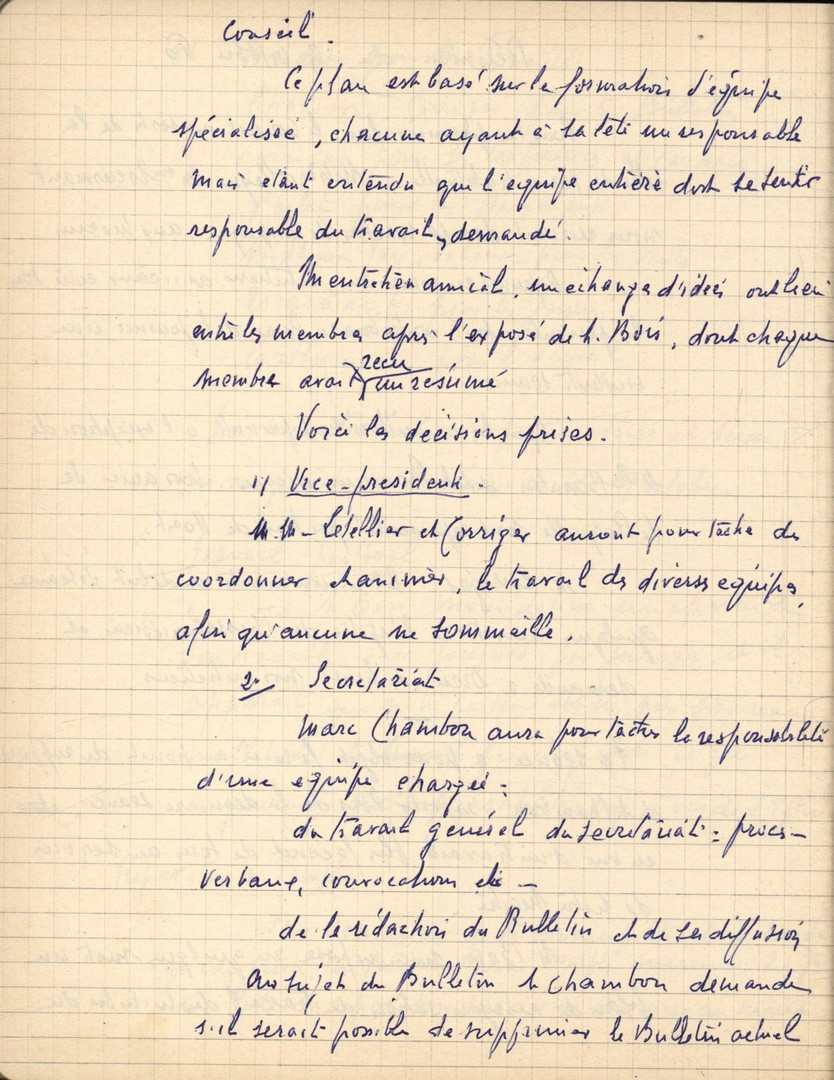 Conseil.
Ce plan est basé sur la formation d'équipe
spécialisée, chacune ayant à sa tête un responsable
mais étant entendu que l'equipe entière doit se sentir
responsable du travail, demandé.
Un entretien amical, un échange d'idées ont lieu
entre les membres après l'exposé de M. Bois, dont chaque
membre avait reçu un résumé
Voici les décisions prises.
1) Vice-president.
M.M- Letellier et Corriger auront pour tâche de
coordonner et animer, le travail des diverses equipes,
afin qu'aucune ne sommeille.
2. Secretariat
Marc Chambon aura pour tâche la responsabilité
d'une equipe chargée :
du travail général du secrétariat : procès-
verbaux, convocations etc -
de la rédaction du Bulletin et de sa diffusion
Au sujet du Bulletin M Chambon demande
s'il serait possible de supprimer le Bulletin actuel